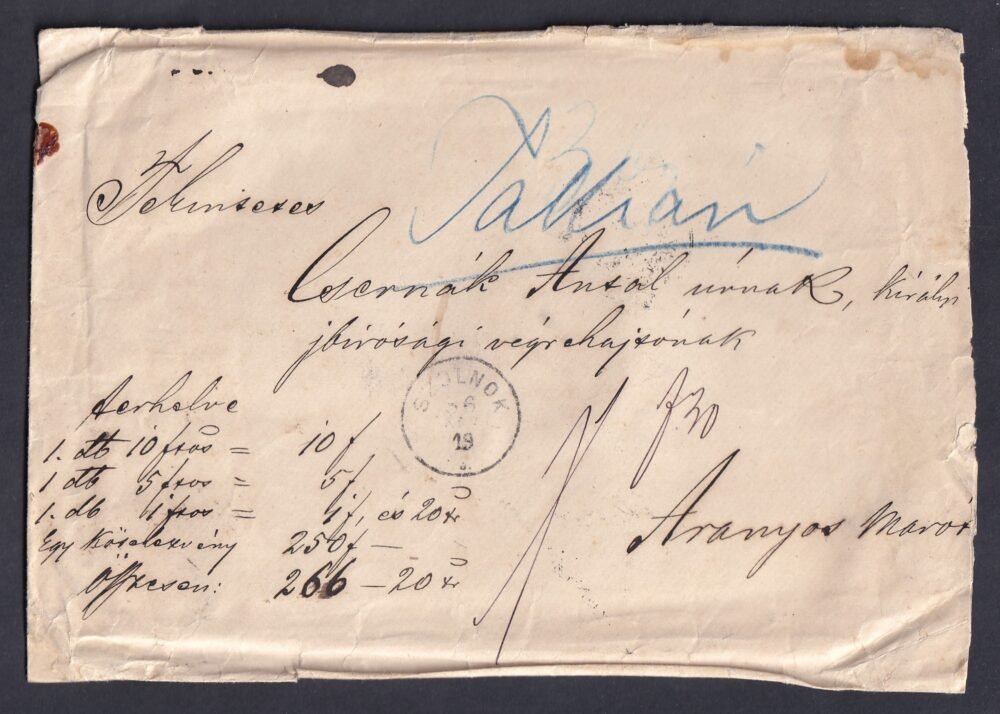 Tekintetes
Csernák Antal úrnak, királyi
jbirósági végrehajtónak
terhelve
1. db 10 frtos = 10 f
1 db 5 frtos = 5 f
1. db 1 frtos = 1 f, és 20 kr
Egy kötelezvény 250 f —
Összesen: 266 — 20 kr
SZOLNOK
19
f 30
Aranyos Marót